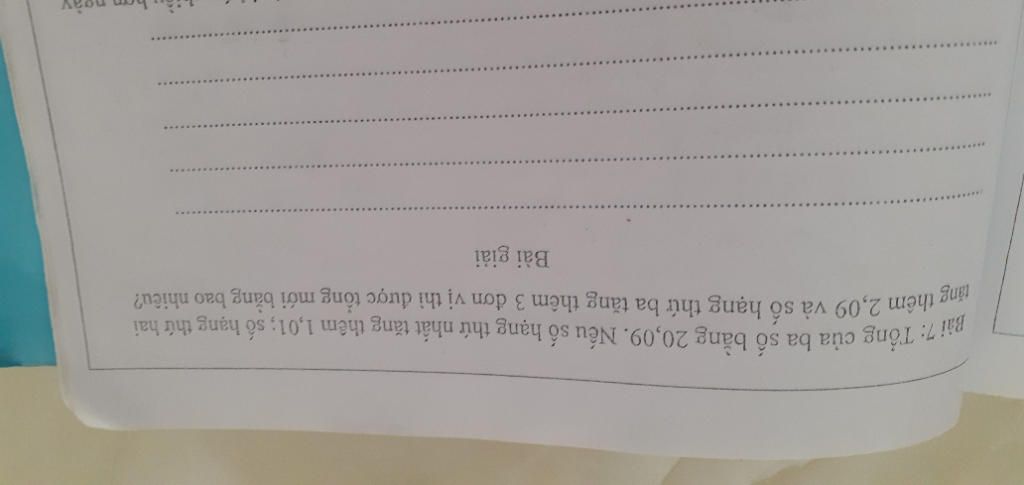 Bài 7: Tổng của ba số bằng 20,09. Nếu số hạng thứ nhất tăng thêm 1,01; số hạng thứ hai
tăng thêm 2,09 và số hạng thứ ba tăng thêm 3 đơn vị thì được tổng mới bằng bao nhiêu?
Bài giải
hơn ngày